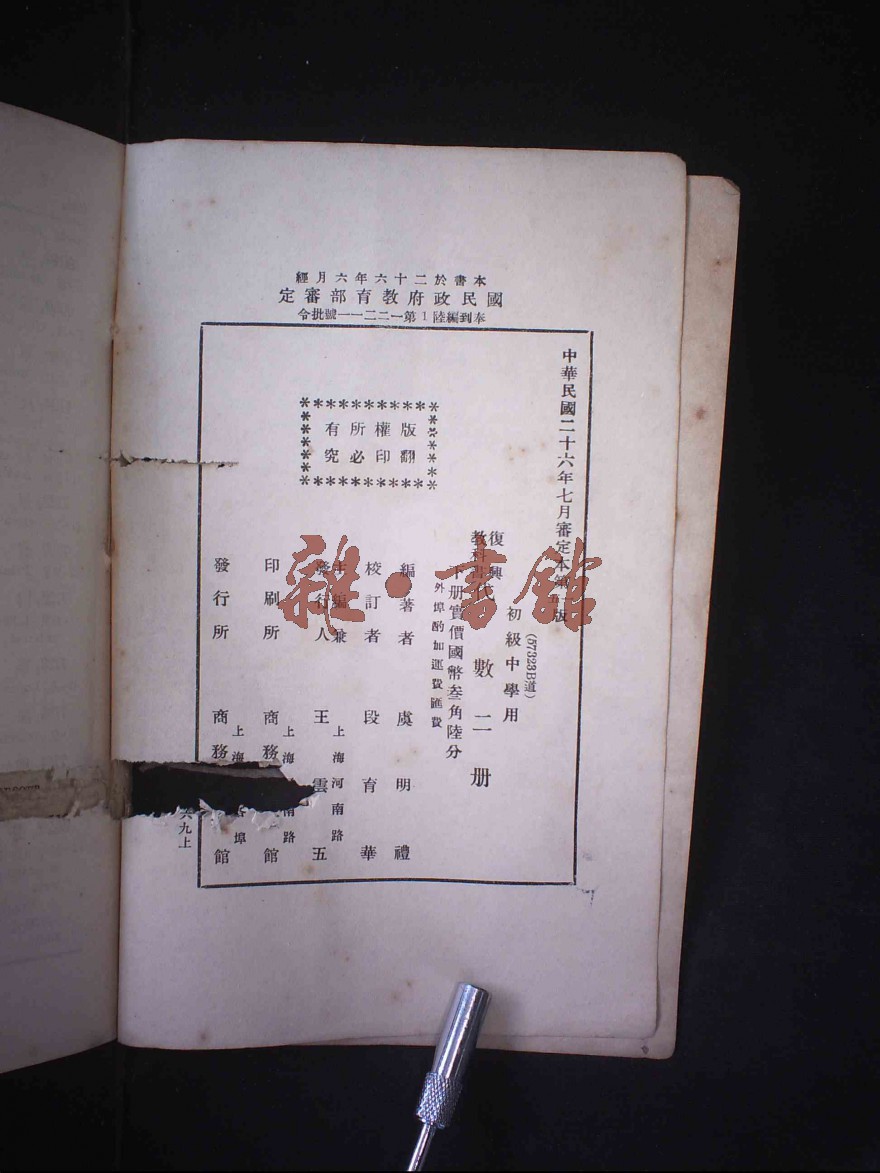 本書於二十六年六月經
國民政府教育部審定
奉到編陸1第一二二一一號批令
中華民國二十六年七月審定本第一版
(57323B道)
初級中學用
復興
教科書
代數二册
下册實價國幣叁角陸分
外埠酌加運費匯費
版權所有
翻印必究
編著者 虞明禮
校訂者 段育華
主編兼
發行人
王雲五
上海河南路
印刷所
商務 館
上海 南路
發行所
商務 館
上海 埠
六九上
雜·書館